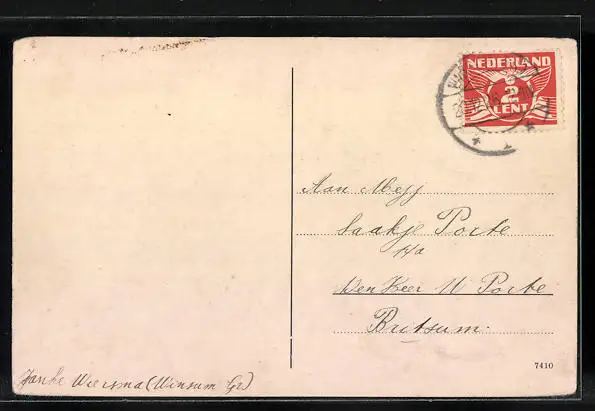 NEDERLAND
2
CENT
Aan Mejj
Saakje Porte
p/a
Den Heer U Porte
Britsum.
7410
Wiersma (Winsum Gr)